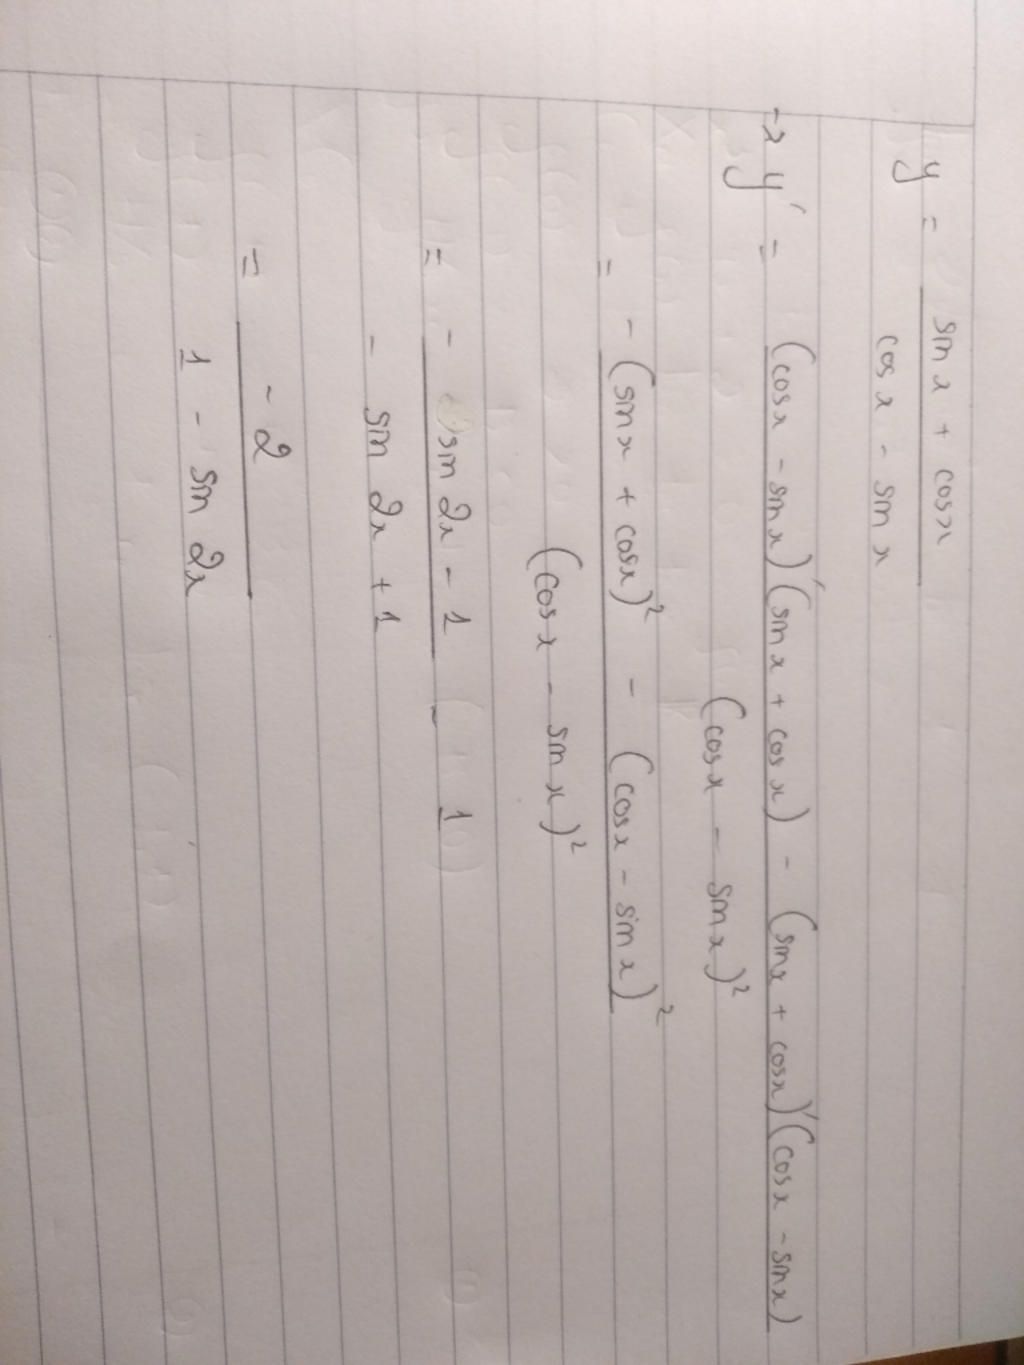 y = sin x + cos x
cos x - sin x
-> y' = (cos x - sin x)'(sin x + cos x) - (sin x + cos x)'(cos x - sin x)
(cos x - sin x)²
= - (sin x + cos x)² - (cos x - sin x)²
(cos x - sin x)²
= - sin 2x - 1 - 1
- sin 2x + 1
= - 2
1 - sin 2x